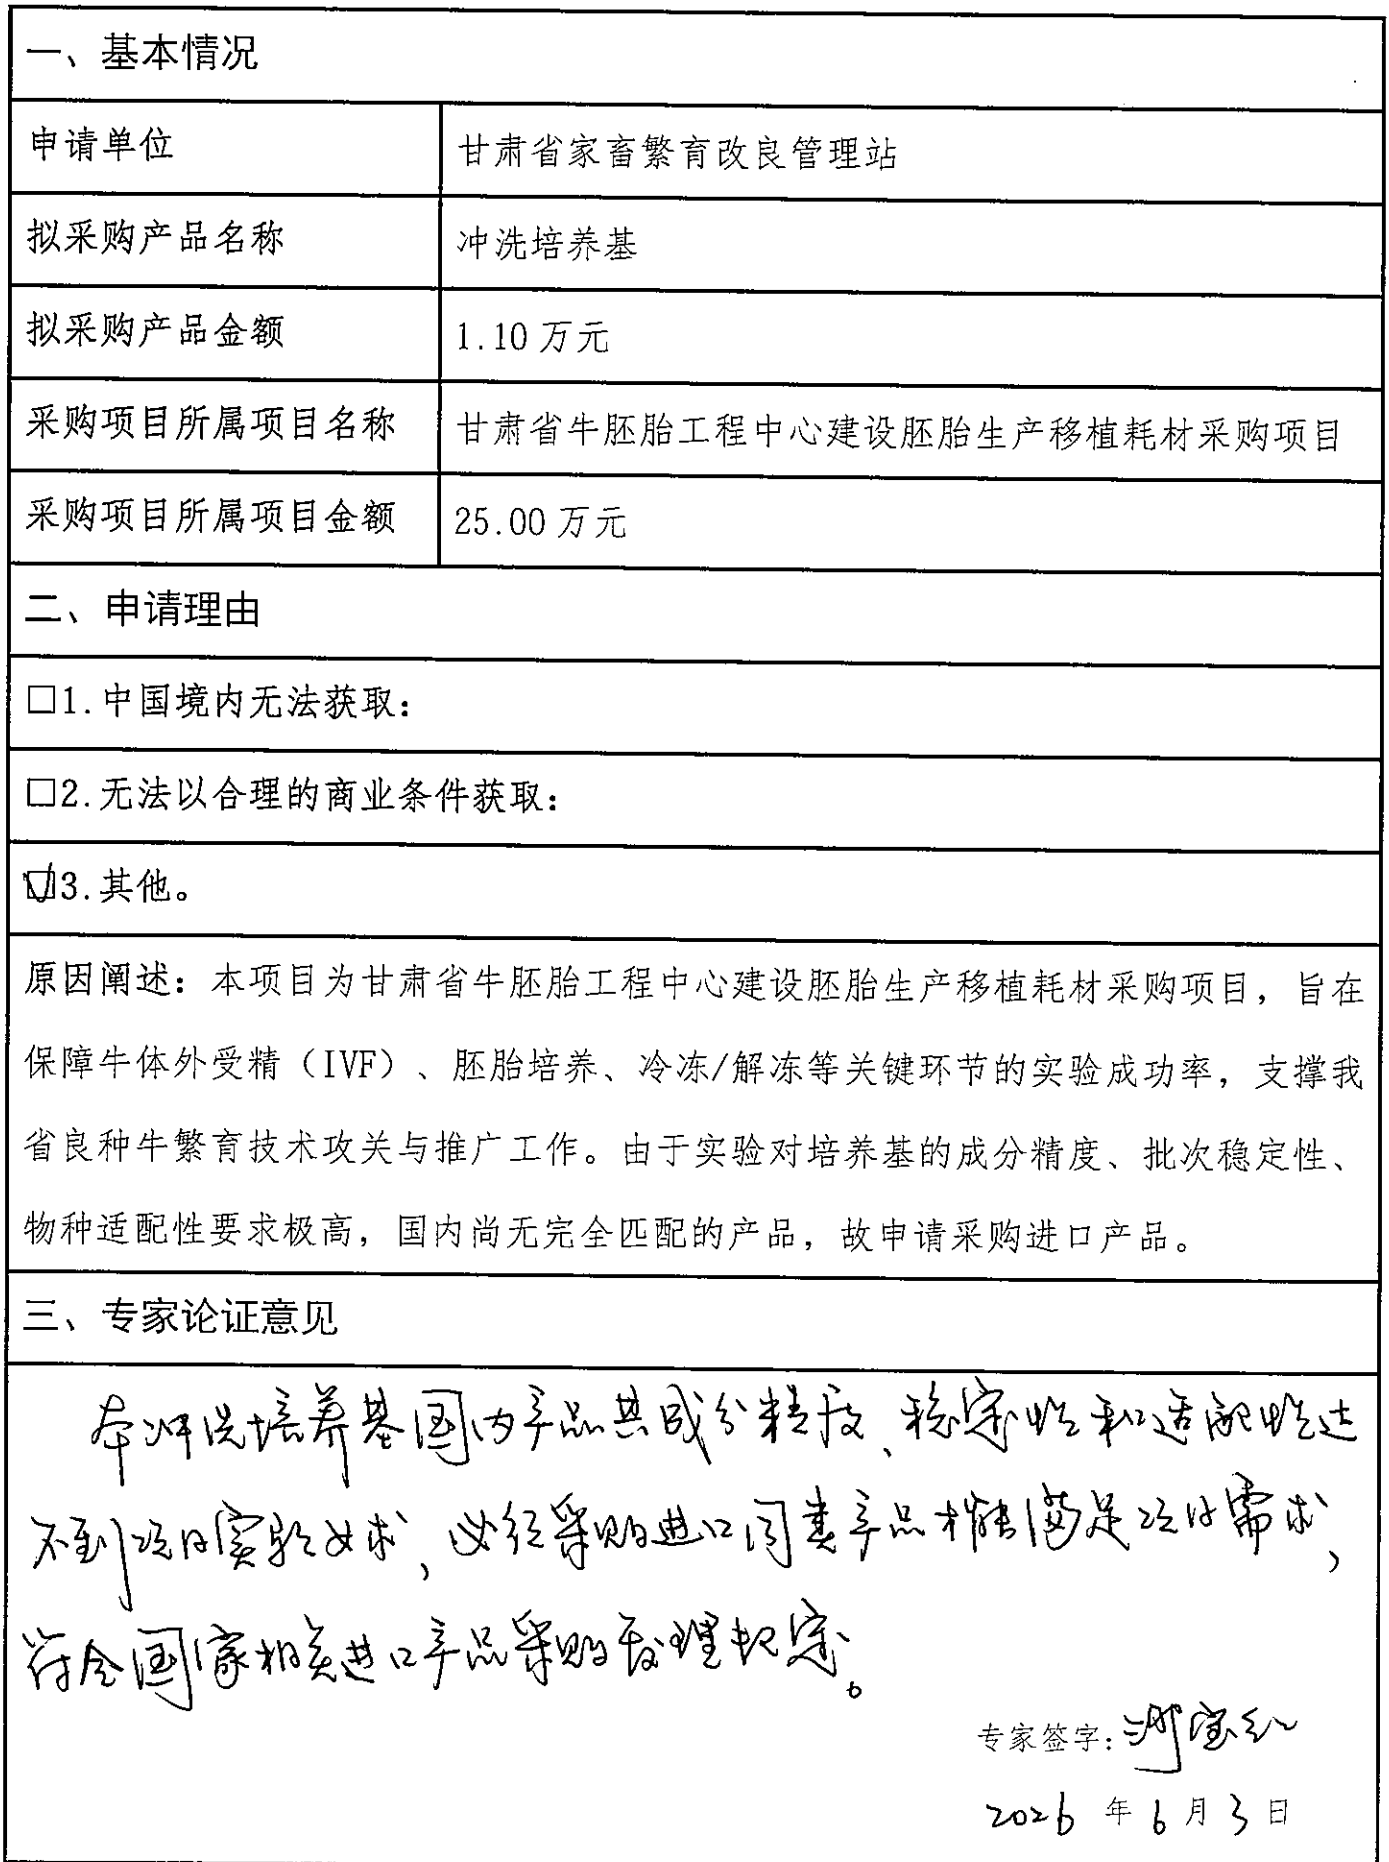 一、基本情况
申请单位 甘肃省家畜繁育改良管理站
拟采购产品名称 冲洗培养基
拟采购产品金额 1.10 万元
采购项目所属项目名称 甘肃省牛胚胎工程中心建设胚胎生产移植耗材采购项目
采购项目所属项目金额 25.00 万元
二、申请理由
□1.中国境内无法获取：
□2.无法以合理的商业条件获取：
☑3.其他。
原因阐述：本项目为甘肃省牛胚胎工程中心建设胚胎生产移植耗材采购项目，旨在
保障牛体外受精（IVF）、胚胎培养、冷冻/解冻等关键环节的实验成功率，支撑我
省良种牛繁育技术攻关与推广工作。由于实验对培养基的成分精度、批次稳定性、
物种适配性要求极高，国内尚无完全匹配的产品，故申请采购进口产品。
三、专家论证意见
本冲洗培养基国内产品其成分精度、稳定性和适配性达
不到项目实验要求，必须采购进口同类产品才能满足项目需求，
符合国家相关进口产品采购管理规定。
专家签字：
2026 年 6 月 3 日